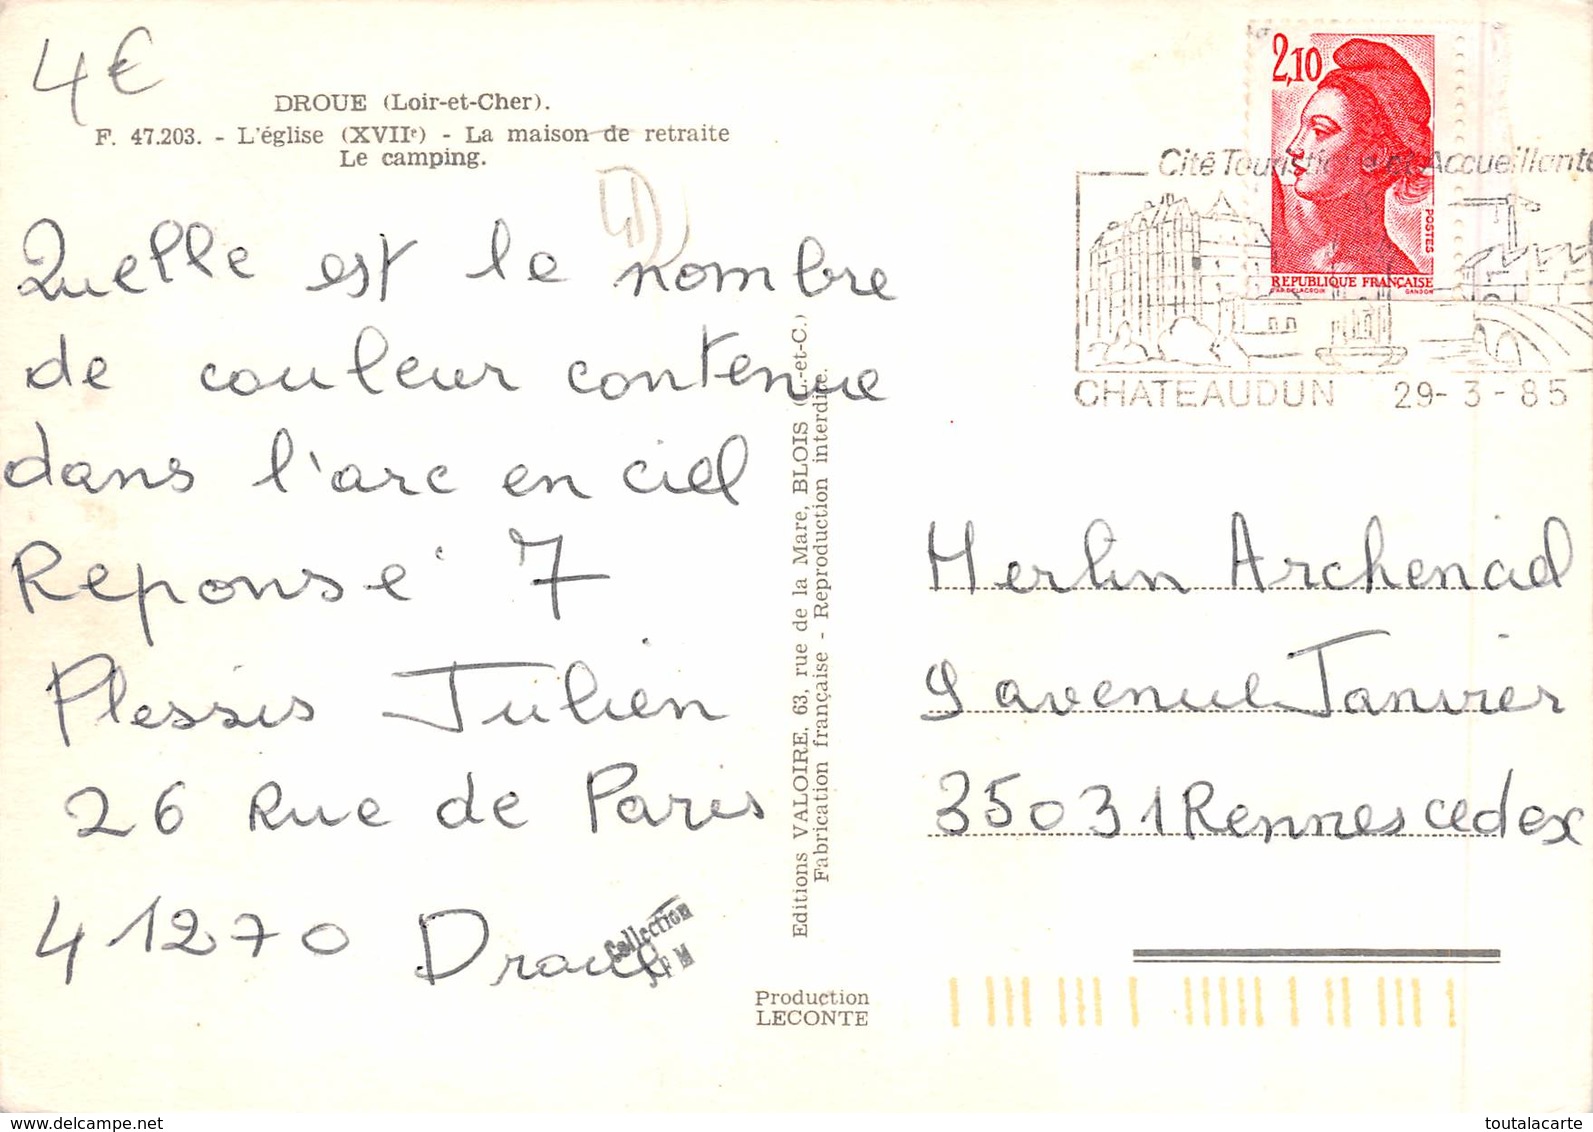 4€
DROUE (Loir-et-Cher).
F. 47.203. - L'église (XVIIe) - La maison de retraite
Le camping.
Quelle est le nombre
de couleur contenue
dans l'arc en ciel
Reponse 7
Plessis Julien
26 Rue de Paris
41270 Droué
Collection
Editions VALOIRE, 63, rue de la Mare, BLOIS (L.-et-C.)
Fabrication française - Reproduction interdite.
Production
LECONTE
2,10
POSTES
REPUBLIQUE FRANÇAISE
D'AP. DELACROIX GANDON
Cité Touristique et Accueillante
CHATEAUDUN 29-3-85
Merlin Archenciel
9 avenue Janvier
35031 Rennes cedex
www.delcampe.net
toutalacarte